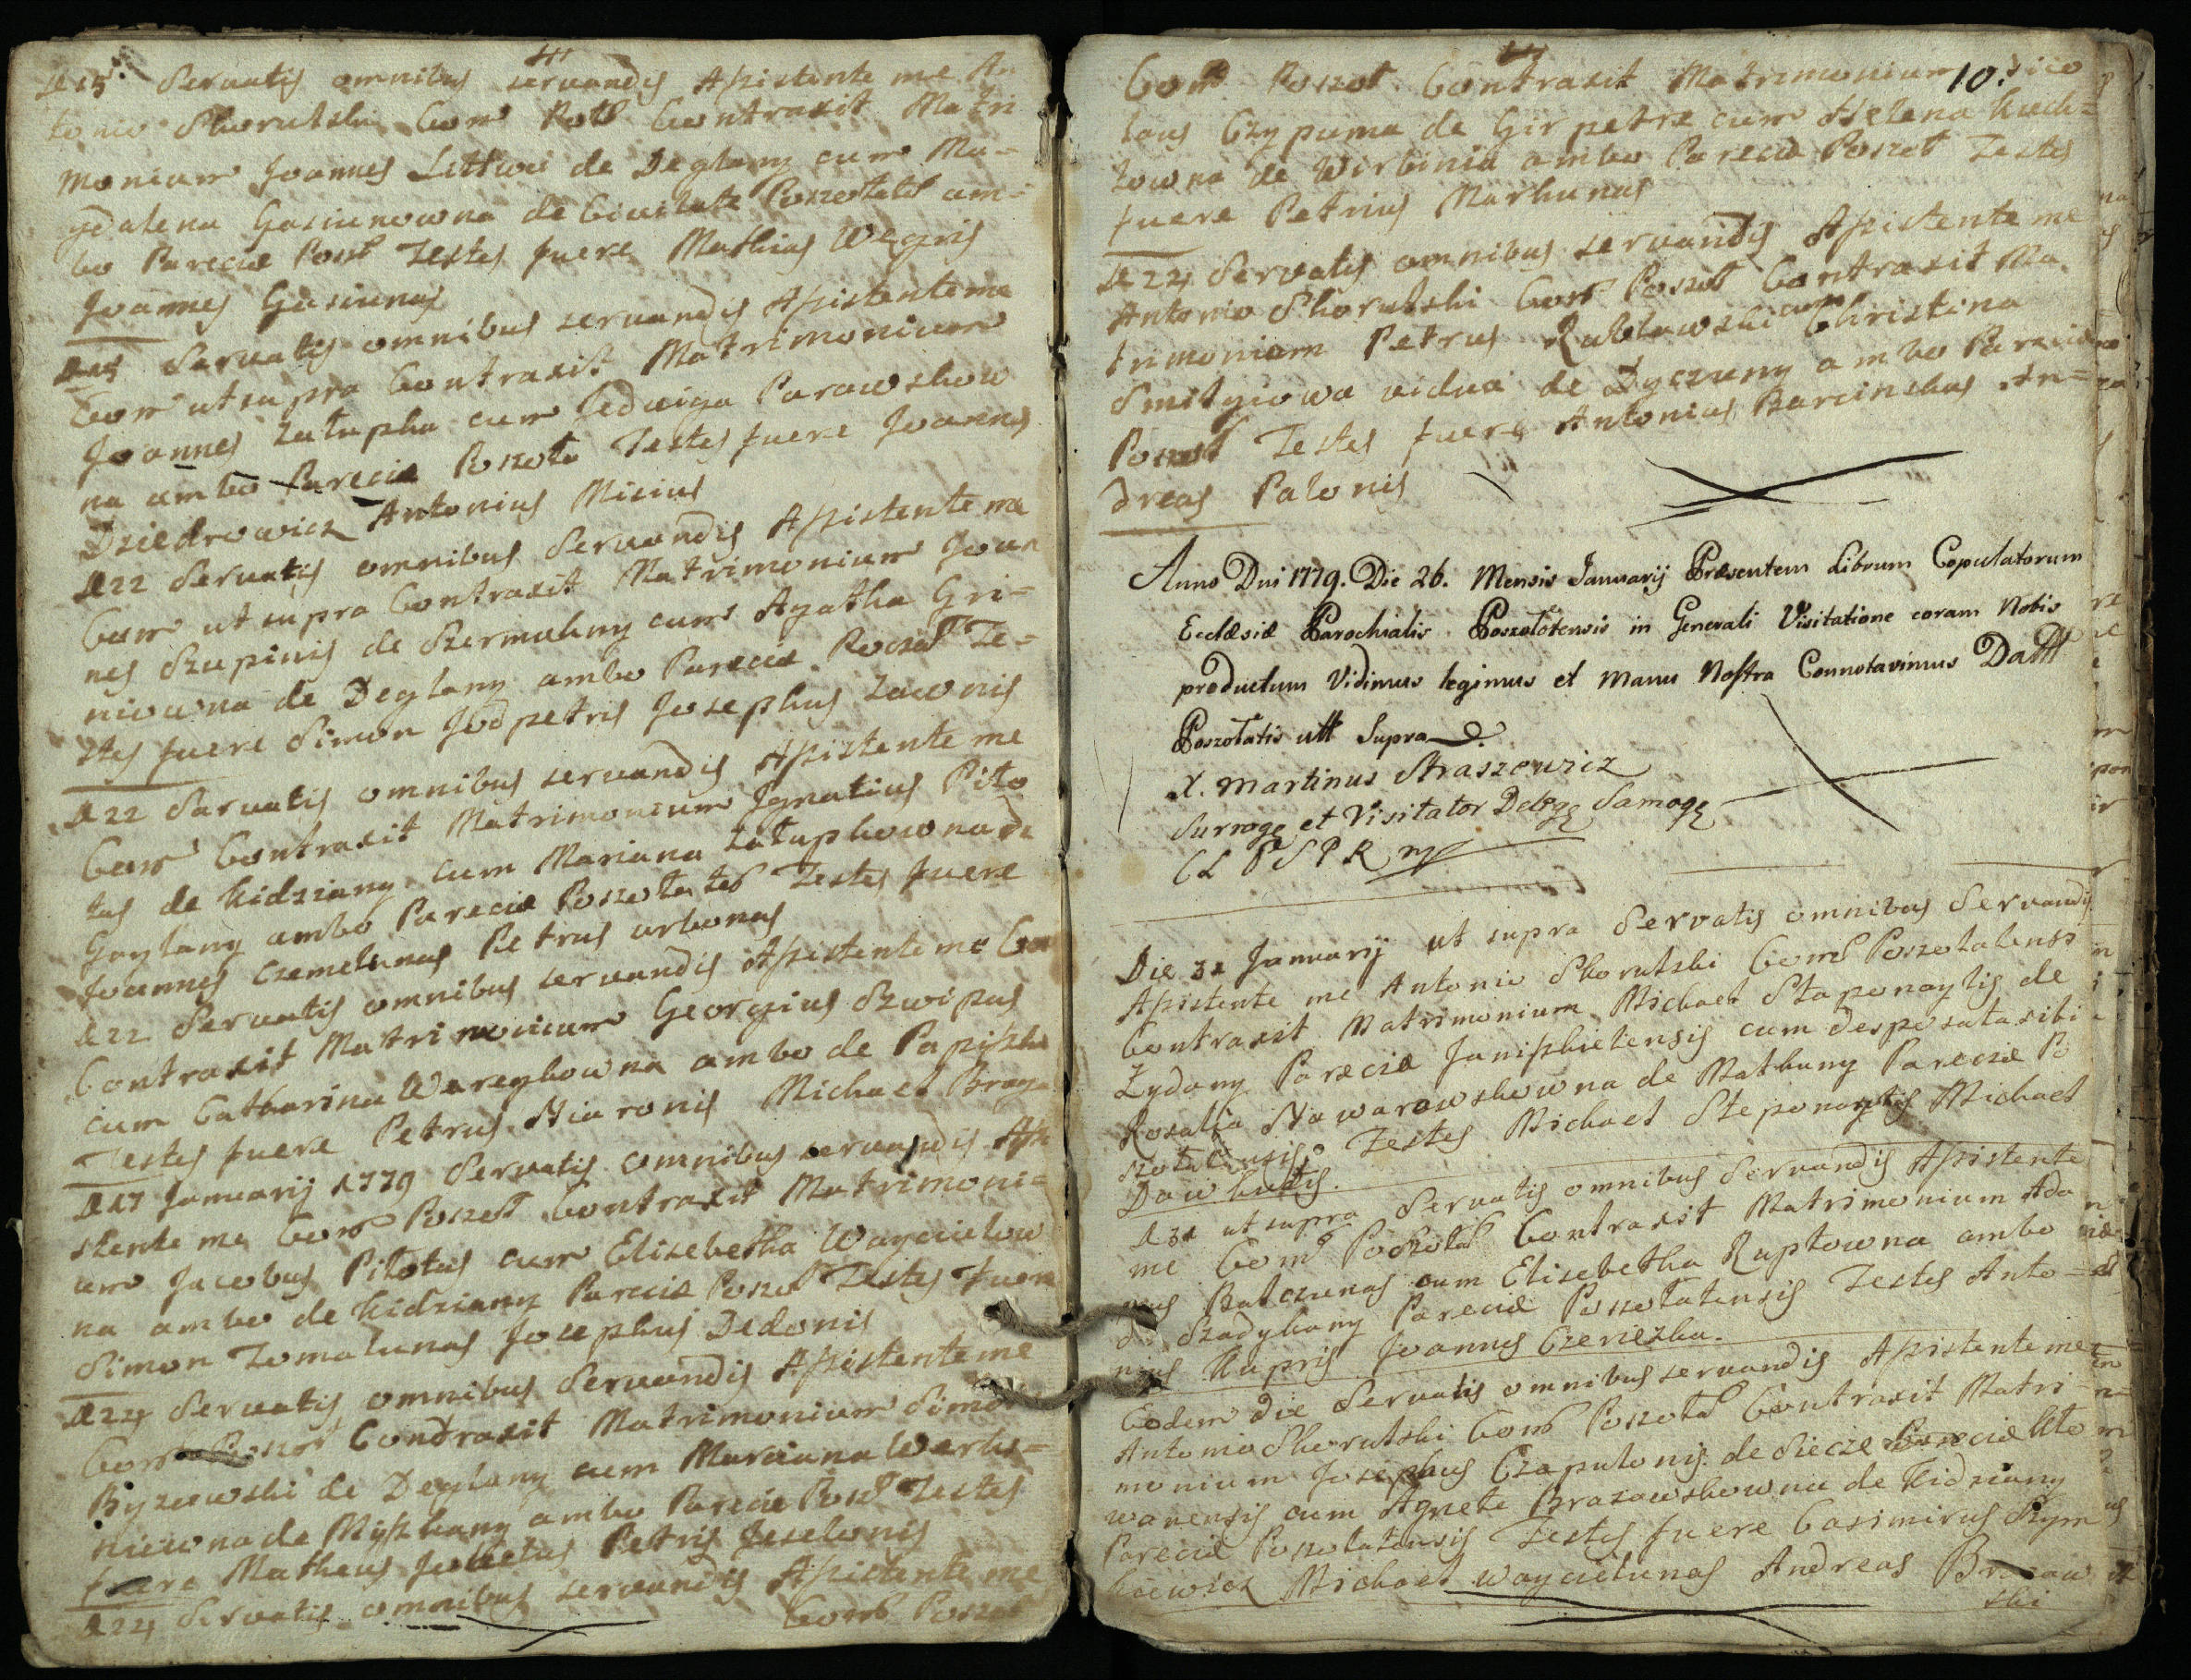 D 15 Servatis omnibus servandis Assistente me An
tonio Skorutski Com Post Contraxit Matri
monium Joannes Littwi de Deglany cum Ma=
gdalena Gasiunowna de Civitate Poszotate am=
bo Parecie Posz Testes fuere Mathias Wegris
Joannes Gasiunas
D 15 Servatis omnibus servandis Assistente me
Com ut supra Contraxit Matrimonium
Joannes Załupka cum Jedviga Parawskow
na ambo Parecia Poszota Testes fuere Joannes
Dziedrowicz Antonius Misius
D 22 Servatis omnibus Servandis Assistente me
Com ut supra Contraxit Matrimonium Joan
nes Szupinis de Szermukny cum Agatha Gri=
niowna de Deglany ambo Parecia Poszot Te=
stes fuere Simon Jodpetris Josephus Zawnis
D 22 Servatis omnibus servandis Assistente me
Com Contraxit Matrimonium Ignatius Pito
tas de Kidziany cum Mariana Załupkowna de
Gaylany ambo Parecia Poszota tes Testes fuere
Joannes Czemelunas Petrus urbonas
D 22 Servatis omnibus servandis Assistente me Com
Contraxit Matrimonium Georgius Szwipas
cum Catharina Waregbowna ambo de Papiszki
Testes fuere Petrus Niaronis Michael Braga
D 17 Januarij 1779 Servatis omnibus servandis Assi
stente me Com Poszot Contraxit Matrimoni=
um Jacobus Pilotas cum Elisebetha Waycielow
na ambo de Kidziany Parecia Poszot Testes fuere
Simon Tomalunas Josephus Dedonis
D 24 Servatis omnibus Servandis Assistente me
Com Poszot Contraxit Matrimonium Simon
Byzowski de Deglany cum Marcianna Werbi=
niewna de Myszkany ambo Parecia Posz Testes
fuere Matheus Jukietas Petris Jeselonis
D 24 Servatis omnibus servandis Assistente me
Com Poszot
10.
Com Poszot Contraxit Matrimonium Nico
laus Czypuma de Girpetre cum Helena Kuch=
towna de Wirbinia ambo Parecia Poszot Testes
fuere Petrius Markunas
D 24 Servatis omnibus servandis Assistente me
Antonio Skorutski Com Poszot Contraxit Ma
trimonium Petrus Rublawski cum Christina
Smilgiowa vidua de Dyczuny ambo Parecia
Poszot Testes fuere Antonius Barcinskas An=
dreas Palonis
Anno Dni 1779. Die 26. Mensis Januarij Præsentem Librum Copulatorum
Ecclæsiæ Parochialis Poszołotensis in Generali Visitatione coram Nobis
productum Vidimus legimus et Manu Nostra Connotavimus Datt
Poszołatis utt Supra
X. Martinus Straszewicz
Surrog et Visitator Deleg Samog
C L P S P R mp
Die 31 Januarij ut supra Servatis omnibus Servandis
Assistente me Antonio Skorutski Com Poszotatensi
Contraxit Matrimonium Michael Staponaytis de
Zydany Parecia Janiszkielensis cum desposata sibi
Rosalia Nawarowskowna de Matkuny Parecia Po
szotatensis. Testes Michael Steponaytis Michael
Dawkutis.
D 31 ut supra Servatis omnibus Servandis Assistente
me Com Poszotat Contraxit Matrimonium Ada
mus Balczunas cum Elisebetha Ruptowna ambo
de Szadykany Parecia Poszotatensis Testes Anto=
nius Kupris Joannes Czerieszka.
Eodem die Servatis omnibus servandis Assistente me
Antonio Skorutski Com Poszotat Contraxit Matri
monium Josephus Czaputonis de Siecze Parecia Kto
wanensis cum Agneta Brazawskowna de Kidziany
Parecia Poszotatensis Testes fuere Casimirus Szym
kiewicz Michael Waycielunas Andreas Brazaw
ski